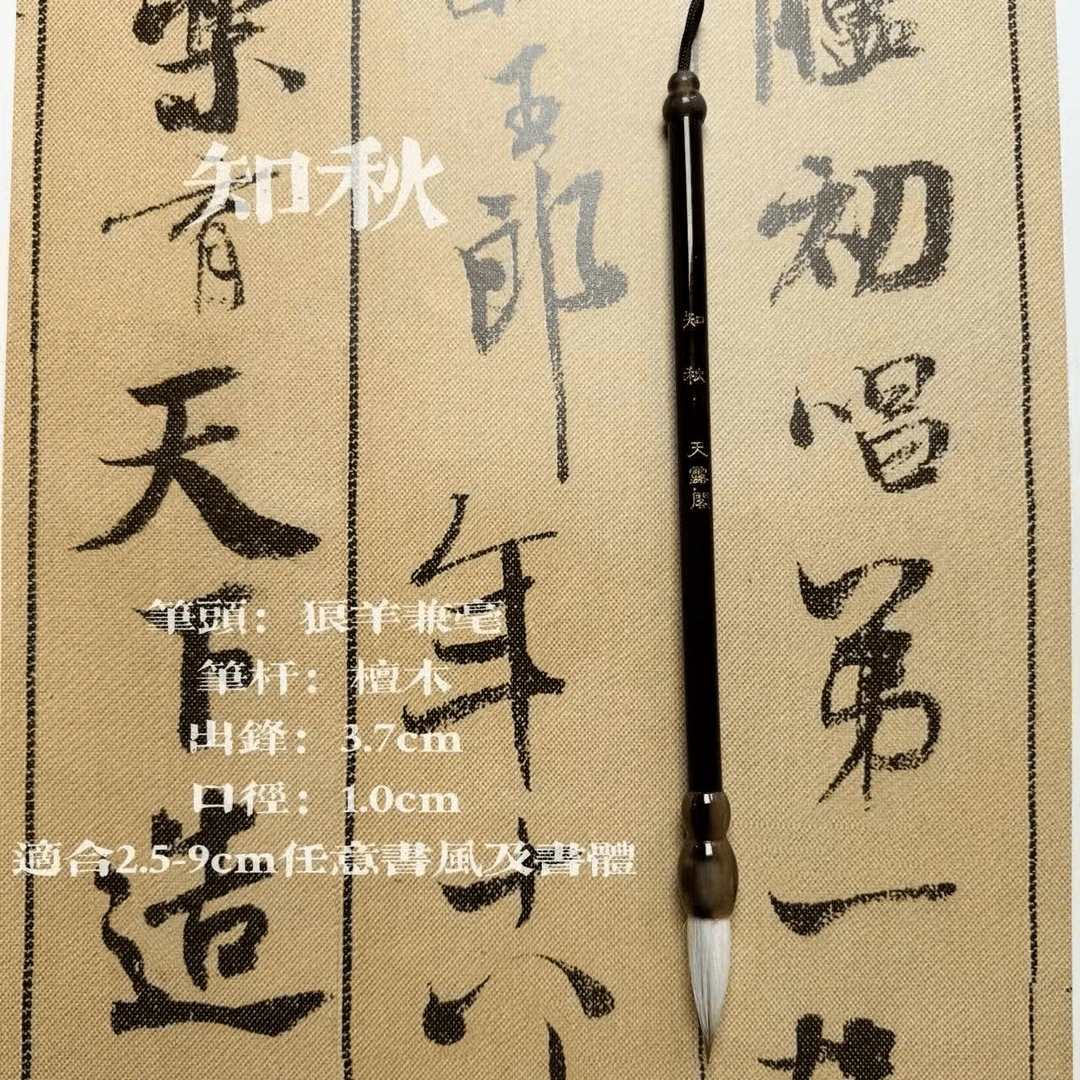 知秋
筆頭：狼羊兼毫
筆杆：檀木
出鋒：3.7cm
口徑：1.0cm
適合2.5-9cm任意書風及書體
知秋 天靈閣
臚初唱弟一
郎年十八
樂有天下造